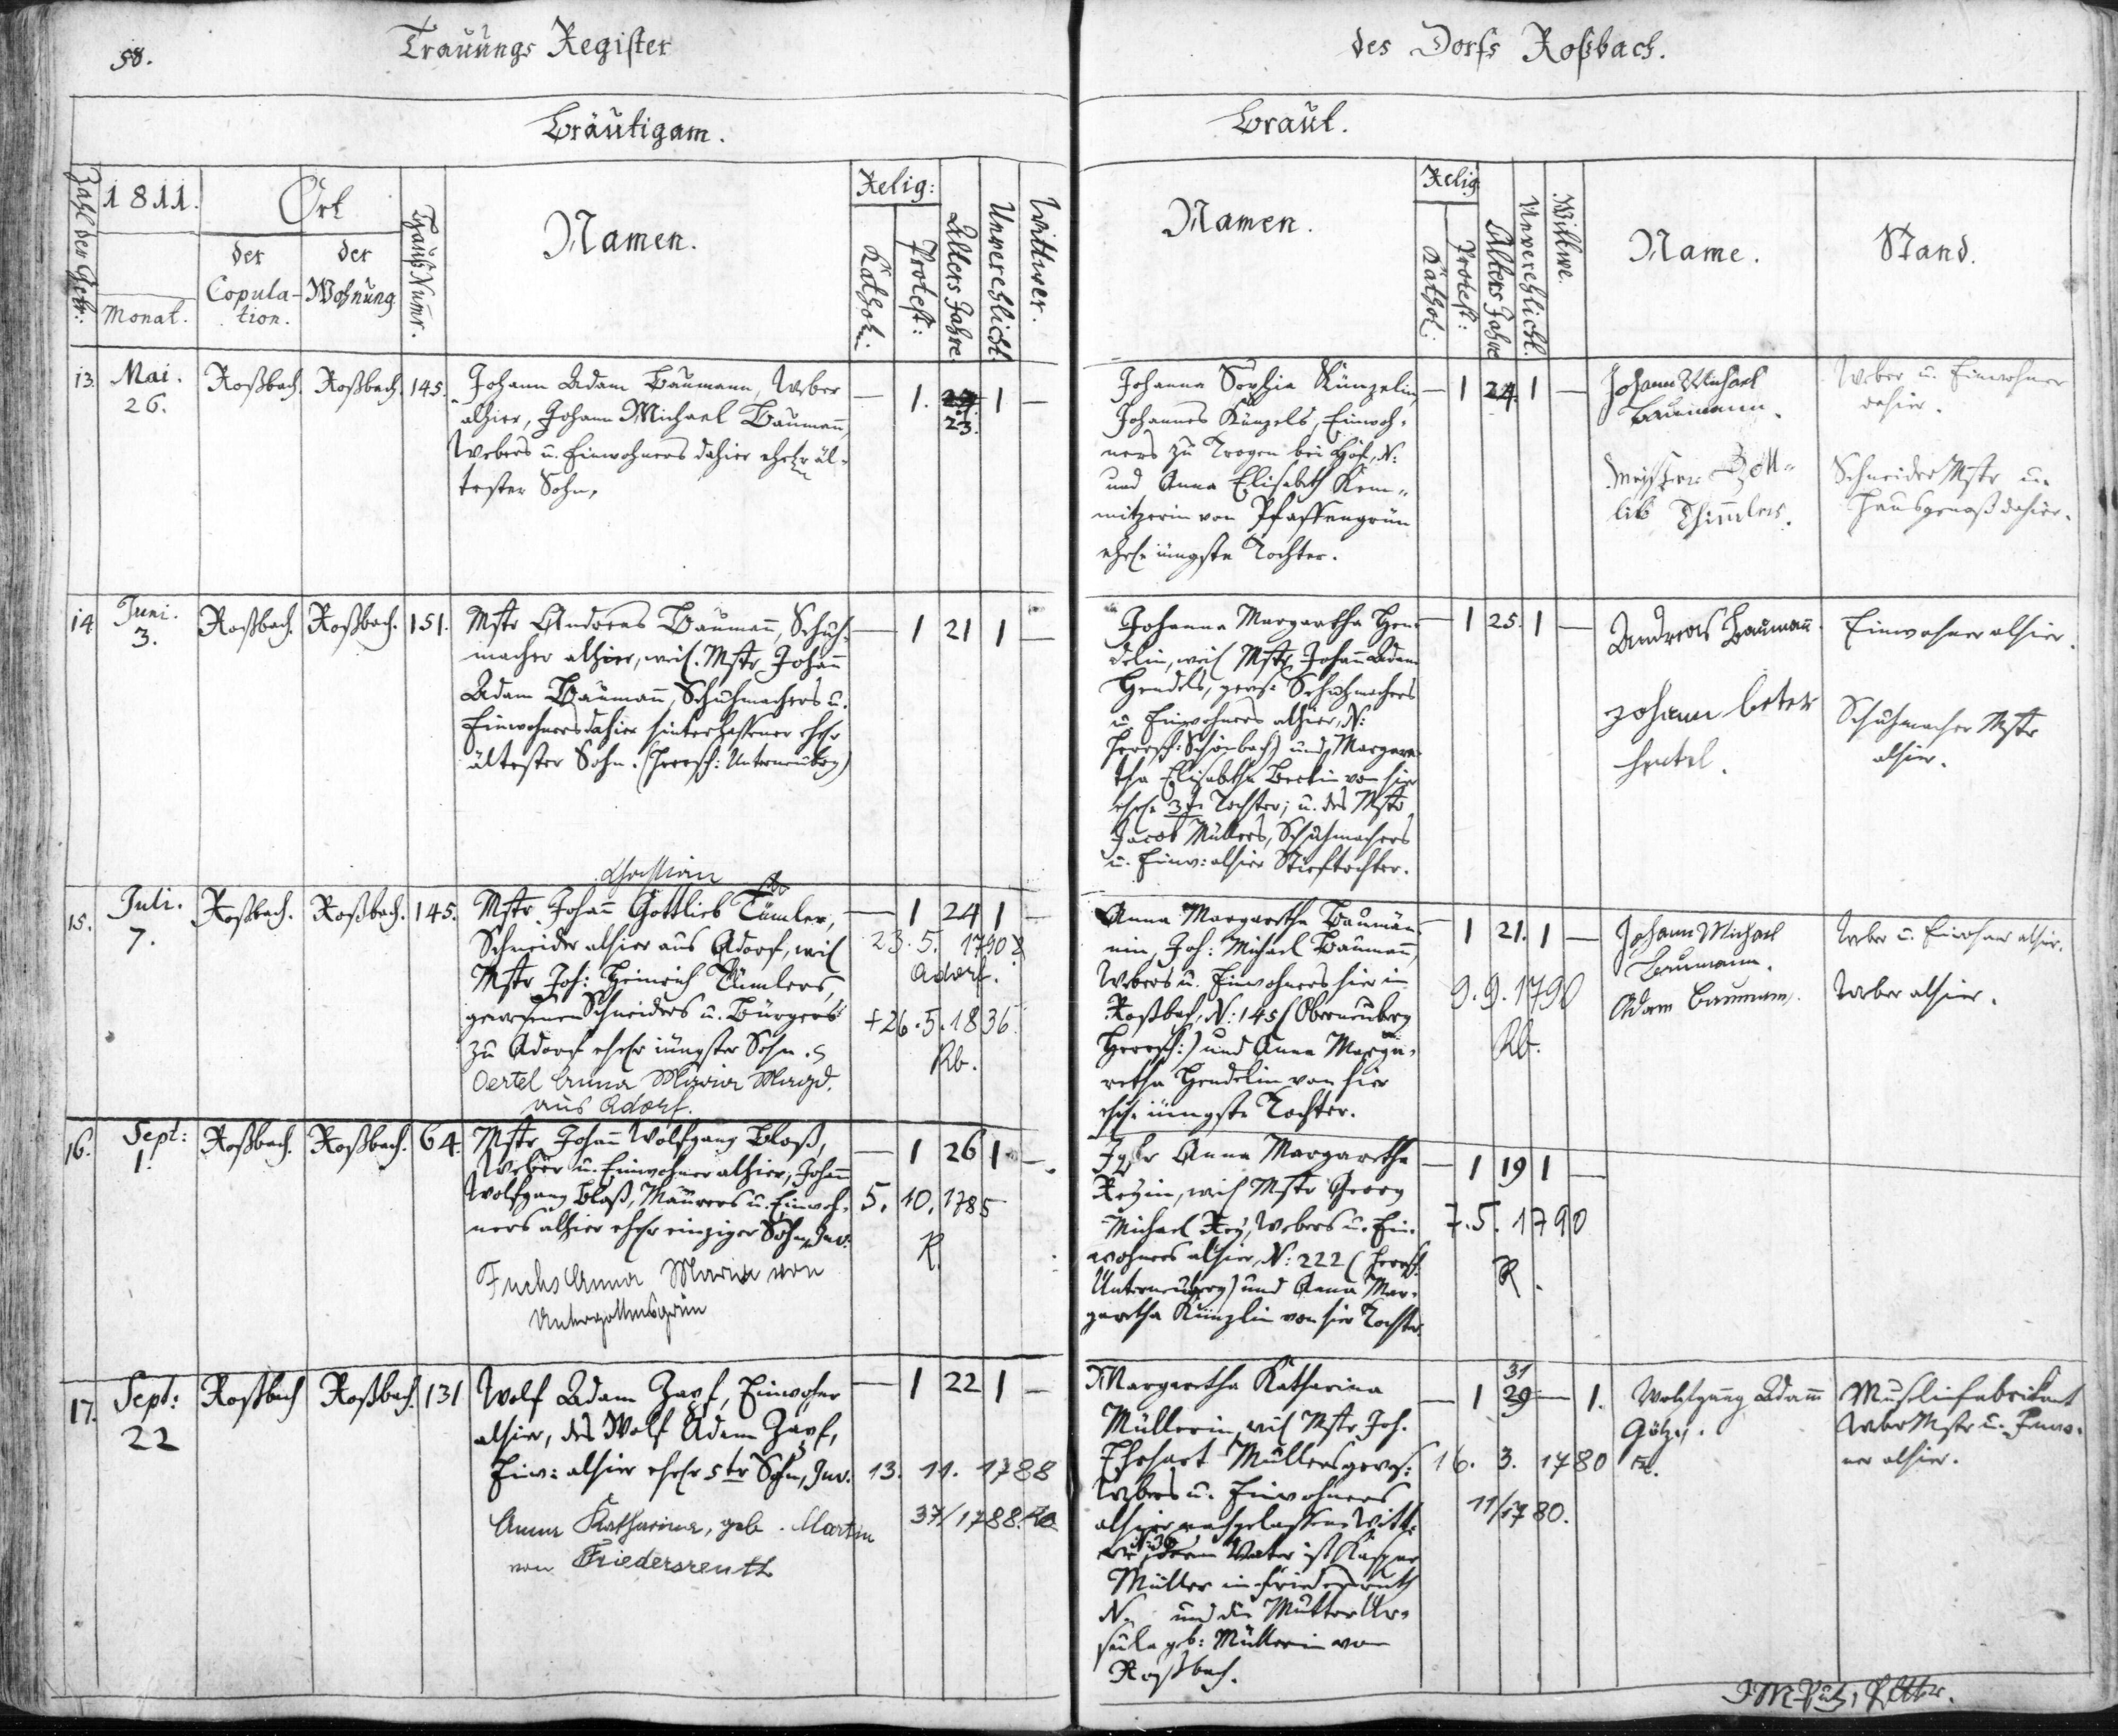 58.
Trauungs Register
des Dorfs Roßbach.
Bräutigam.
Braut.
Zahl der
1811.
Monat.
Ort
der Copula-
tion.
der Wohnung
Hauß Numr.
Namen.
Relig:
Kathol:
Protest:
Alters Jahre.
Unverehlicht.
Wittwer.
Namen.
Relig:
Kathol:
Protest:
Alters Jahre
Unverehlicht.
Wittwe.
Name.
Stand.
13. Mai. 26. Roßbach. Roßbach. 145.
Johann Adam Baumann, Weber
alhier, Johann Michael Baumann,
Webers u. Einwohners dahier ehelr äl-
tester Sohn.
— 1. 23. 1 —
Johanna Sophia Künzelin,
Johannes Künzels, Einwoh-
ners zu Trogen bei Hof, N:
und Anna Elisabeth Kem-
nitzerin von Pfaffengrün
ehel. jüngste Tochter.
— 1 24. 1 —
Johann Michael
Baumann.
Meister Gott-
lieb Thümler.
Weber u. Einwohner
dahier.
Schneider Mstr u.
Hausgenoß dahier.
14. Juni. 3. Roßbach. Roßbach. 151.
Mstr Andreas Baumann, Schuh-
macher alhier, weil. Mstr Johann
Adam Baumann, Schuhmachers u.
Einwohners dahier hinterlassener ehelr
ältester Sohn. (Herrsch: Unterneuberg)
— 1 21 1 —
Johanna Margaretha Hen-
delin, weil Mstr Johann Adam
Hendels, gewes. Schuhmachers
u. Einwohners alhier, N:
Herrsch: Schönbach) und Margare-
tha Elisabetha Beckin von hier
ehel. 3te Tochter; u. des Mstr
Jacob Müllers, Schuhmachers
u. Einw: alhier Stieftochter.
— 1 25. 1 —
Andreas Baumann.
Johann beter
hentel.
Einwohner alhier.
Schuhmacher Mstr
alhier.
Christian
15. Juli. 7. Roßbach. Roßbach. 145.
Mstr Johann Gottlieb Tümler,
Schneider alhier aus Adorf, weil
Mstr Joh: Heinrich Tümlers,
gewesenen Schneiders u. Bürgers
zu Adorf ehelr jüngster Sohn.
Oertel Anna Maria Magd.
aus Adorf.
— 1 24 1 —
23. 5. 1790?
Adorf.
+ 26. 5. 1836.
Rb.
Anna Margaretha Baumän-
nin, Joh: Michael Baumann,
Webers u. Einwohners hier in
Roßbach, N: 145 (Oberneuberg
Herrsch:) und Anna Marga-
retha Hendelin von hier
ehel. jüngste Tochter.
1 21. 1 —
9. 9. 1790
Rb.
Johann Michael
Baumann.
Adam Baumann.
Weber u. Einwohner alhier.
Weber alhier.
16. Sept: 1. Roßbach. Roßbach. 64.
Mstr Johann Wolfgang Bloß,
Weber u. Einwohner alhier, Johann
Wolfgang Bloß, Maurers u. Einwoh-
ners alhier ehelr einziger Sohn, Juv.
Fuchs Anna Maria von
Untergettengrün
— 1 26 1 —
5. 10. 1785
R.
Jgfr Anna Margaretha
Reyin, weil Mstr Georg
Michael Rey, Webers u. Ein-
wohners alhier, N: 222 (Herrsch:
Unterneuberg) und Anna Mar-
garetha Künzlin von hier Tochter.
— 1 19 1 —
7. 5. 1790
R.
17. Sept: 22 Roßbach Roßbach. 131
Wolf Adam Zapf, Einwohner
alhier, des Wolf Adam Zapf,
Einw: alhier ehelr 5tr Sohn, Juv.
Anna Katharina, geb. Martin
von Friedersreuth
— 1 22 1 —
13. 11. 1788
37/1788. Ro
Margaretha Katharina
Müllerin, weil Mstr Joh.
Ehrhart Müllers gewes:
Webers u. Einwohners
alhier nachgelassene Witt-
we deren Vater ist Kaspar
Müller in Friedersreuth
N. und die Mutter Ur-
sula geb: Müllerin von
Roßbach.
31
— 1 29 — 1.
16. 3. 1780
11/1780.
Wolfgang Adam
Götz.
Muslinfabrikant
Weber Mstr u. Einwo-
ner alhier.